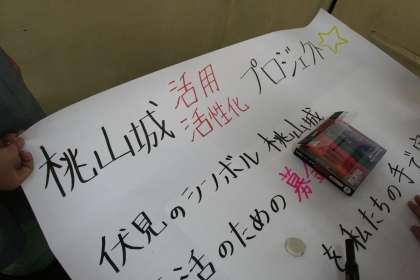 桃山城 活用 活性化 プロジェクト☆
伏見のシンボル 桃山城
活のための 募金
を私たちの手で